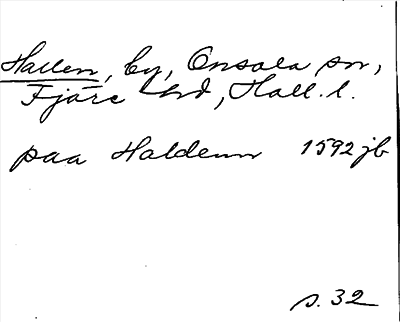 Hallen, by, Onsala sn,
Fjäre hd, Hall. l.
paa Haldenn 1592 jb
s. 32